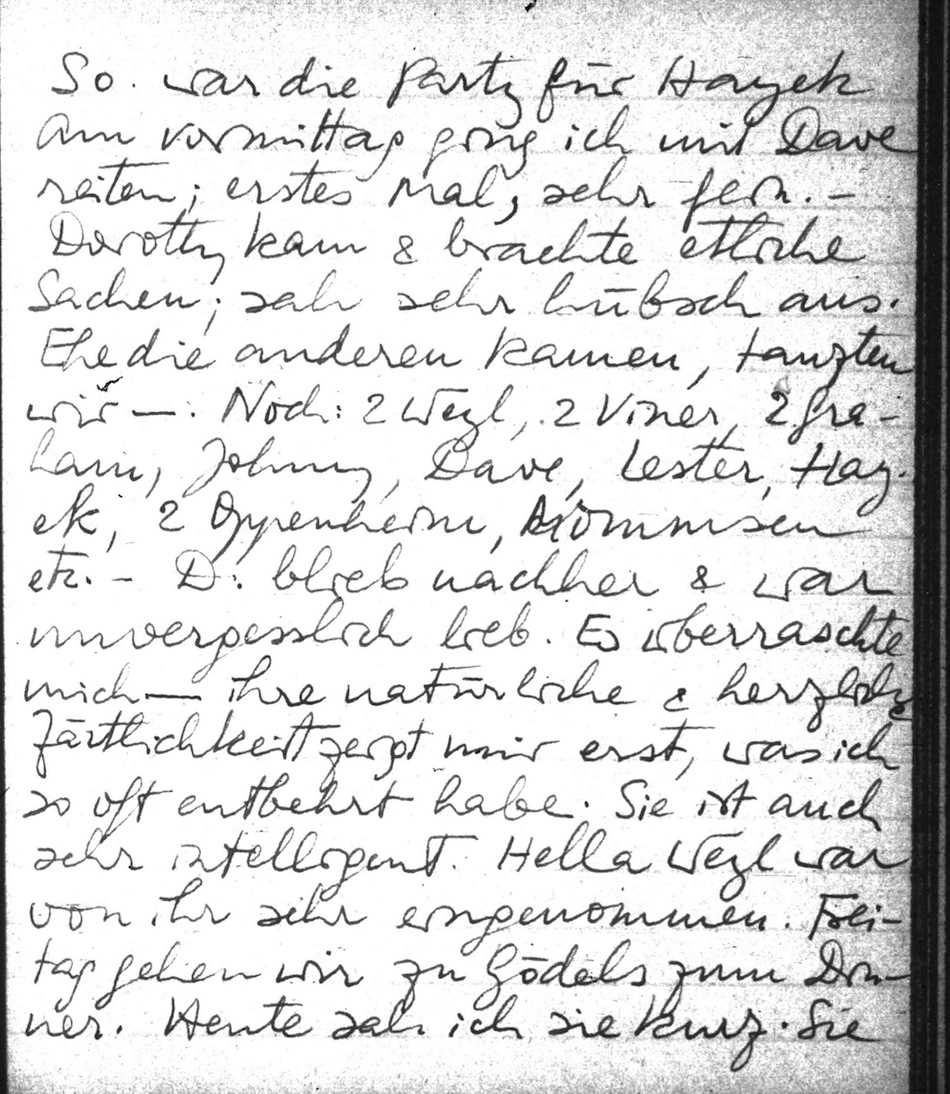 So. war die Party für Hayek
Am vormittag ging ich mit Dave
reiten; erstes Mal, sehr fein. –
Dorothy kam & brachte etliche
Sachen; sah sehr hübsch aus.
Ehe die anderen kamen, tanzten
wir —. Noch: 2 Weyl, 2 Viner, 2 Gra-
ham, Johnny, Dave, Lester, Hay-
ek, 2 Oppenheim, Mommsen
etc. – D. blieb nachher & war
unvergesslich lieb. Es überraschte
mich — ihre natürliche & herzliche
Zärtlichkeit zeigt mir erst, was ich
so oft entbehrt habe. Sie ist auch
sehr intelligent. Hella Weyl war
von ihr sehr eingenommen. Frei-
tag gehen wir zu Gödels zum Din-
ner. Heute sah ich sie kurz. Sie